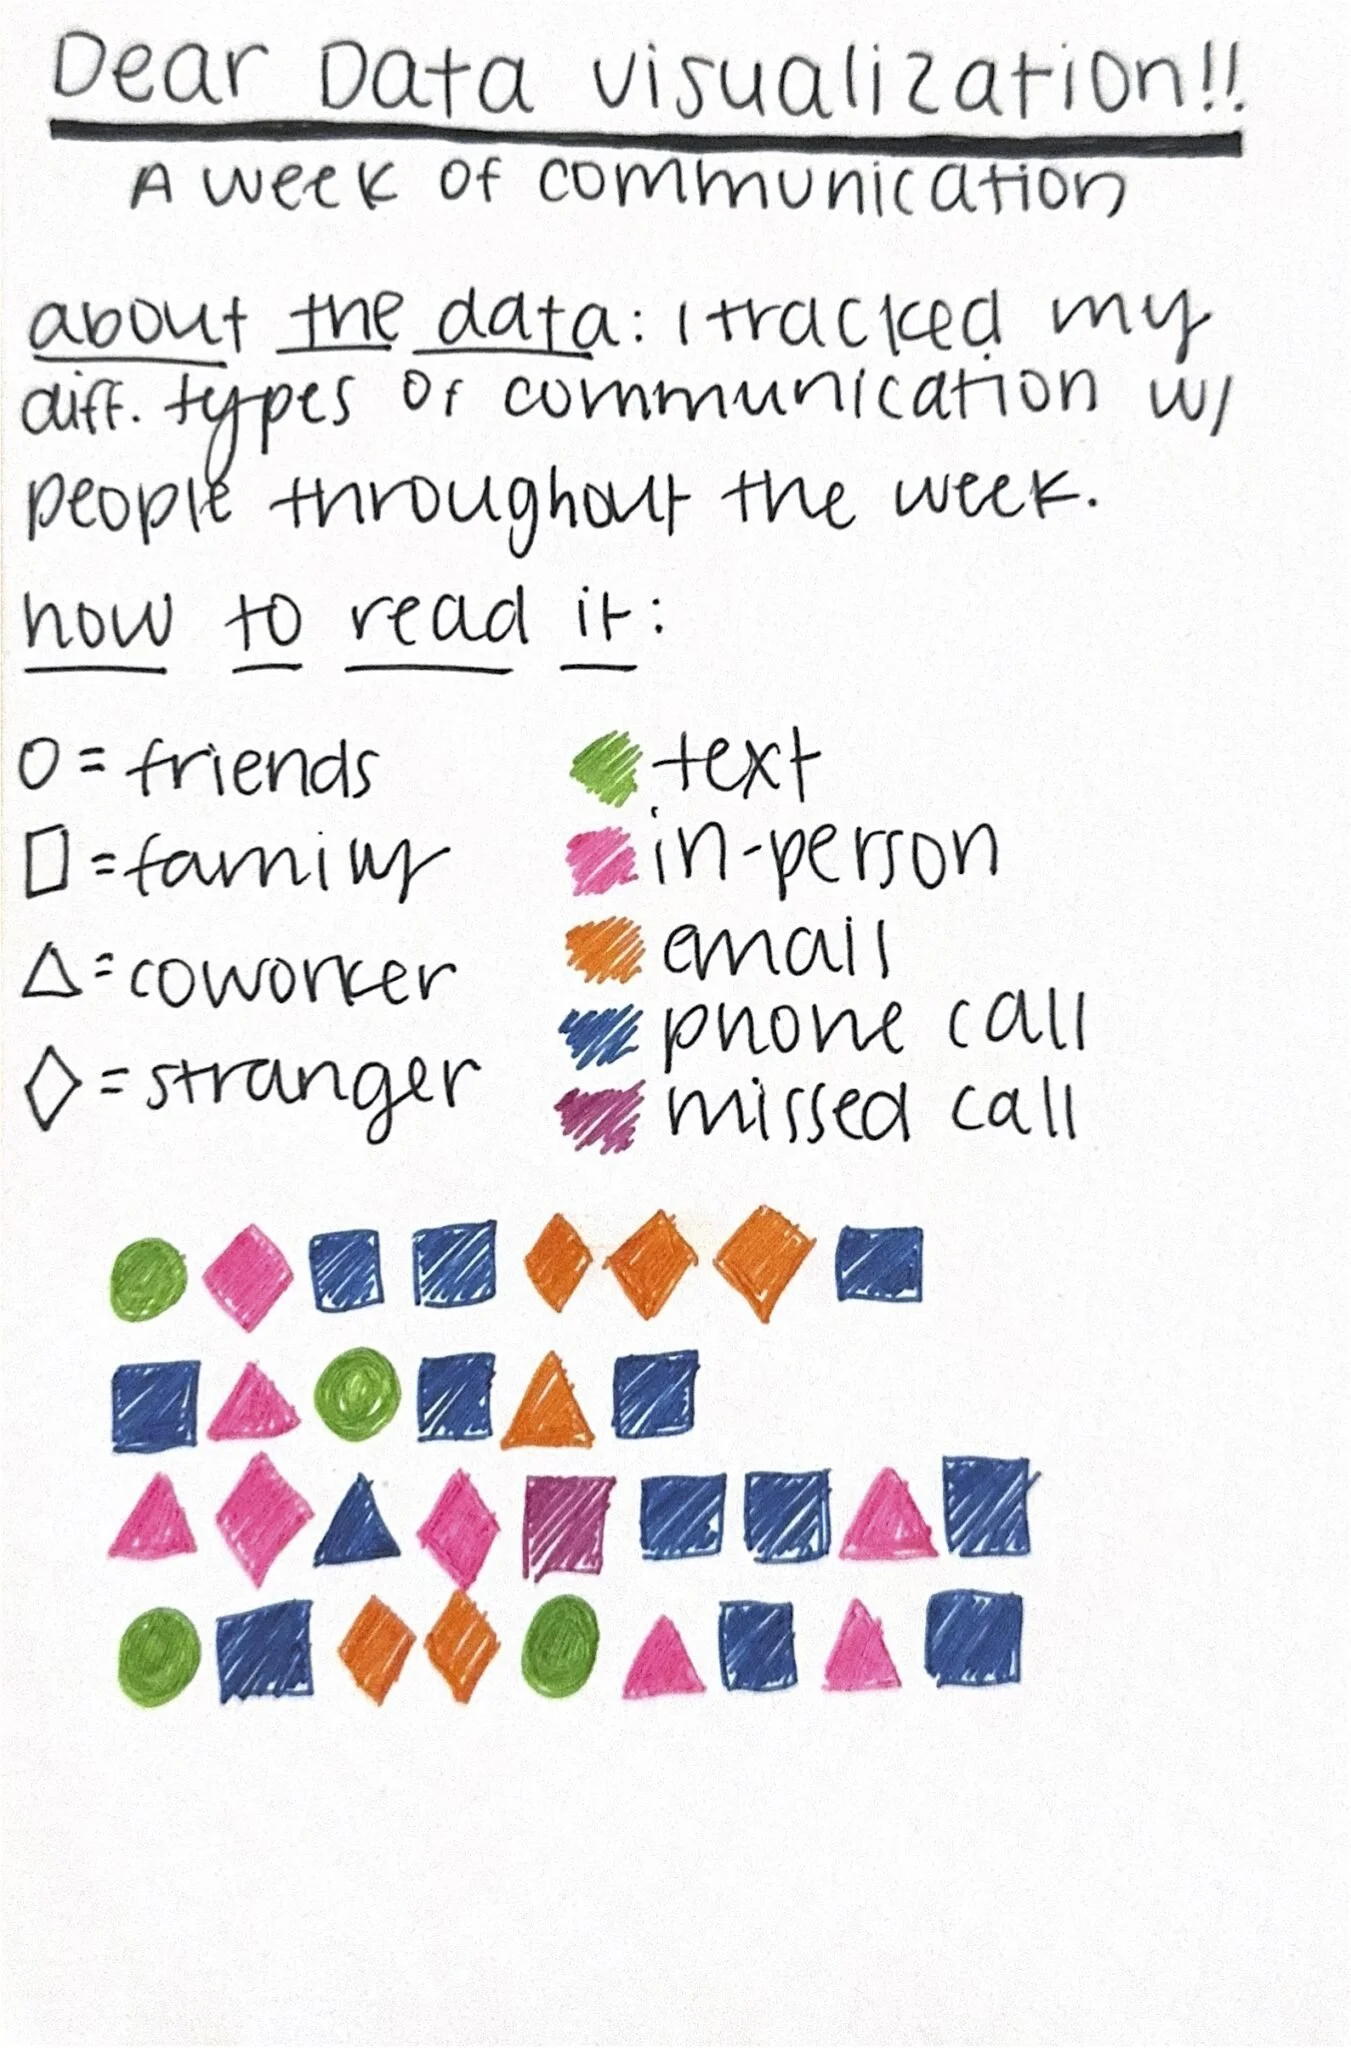 Dear Data visualization!!
A week of communication
about the data: I tracked my
diff. types of communication w/
people throughout the week.
how to read it:
O = friends
□ = family
△ = coworker
◇ = stranger
text
in-person
email
phone call
missed call